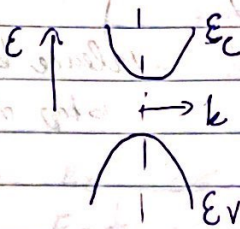 ε εc
k
εv